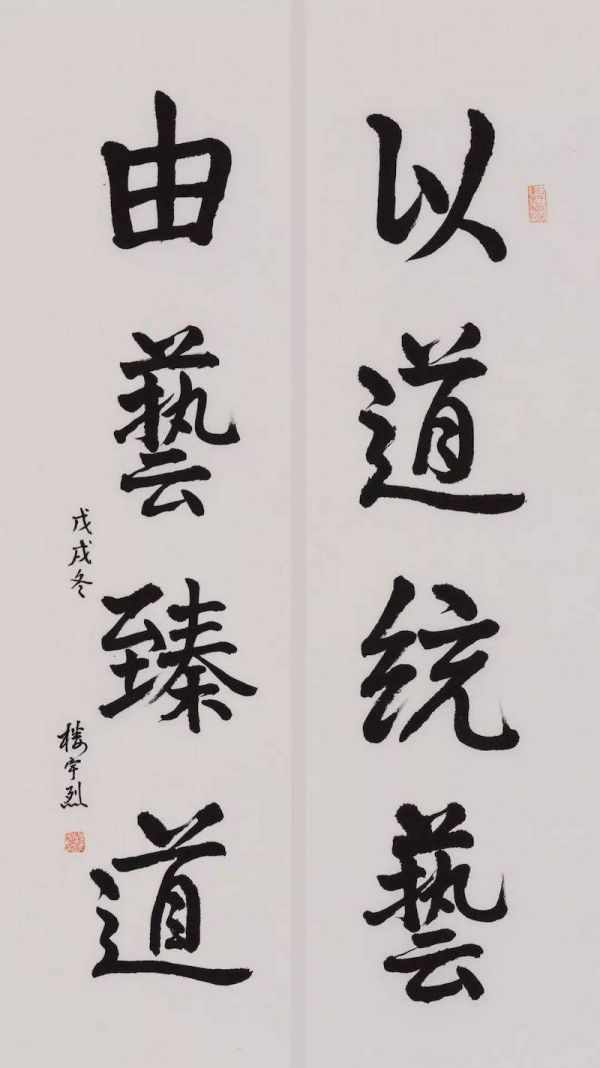 以道统藝
由藝臻道
戊戌冬
楼宇烈